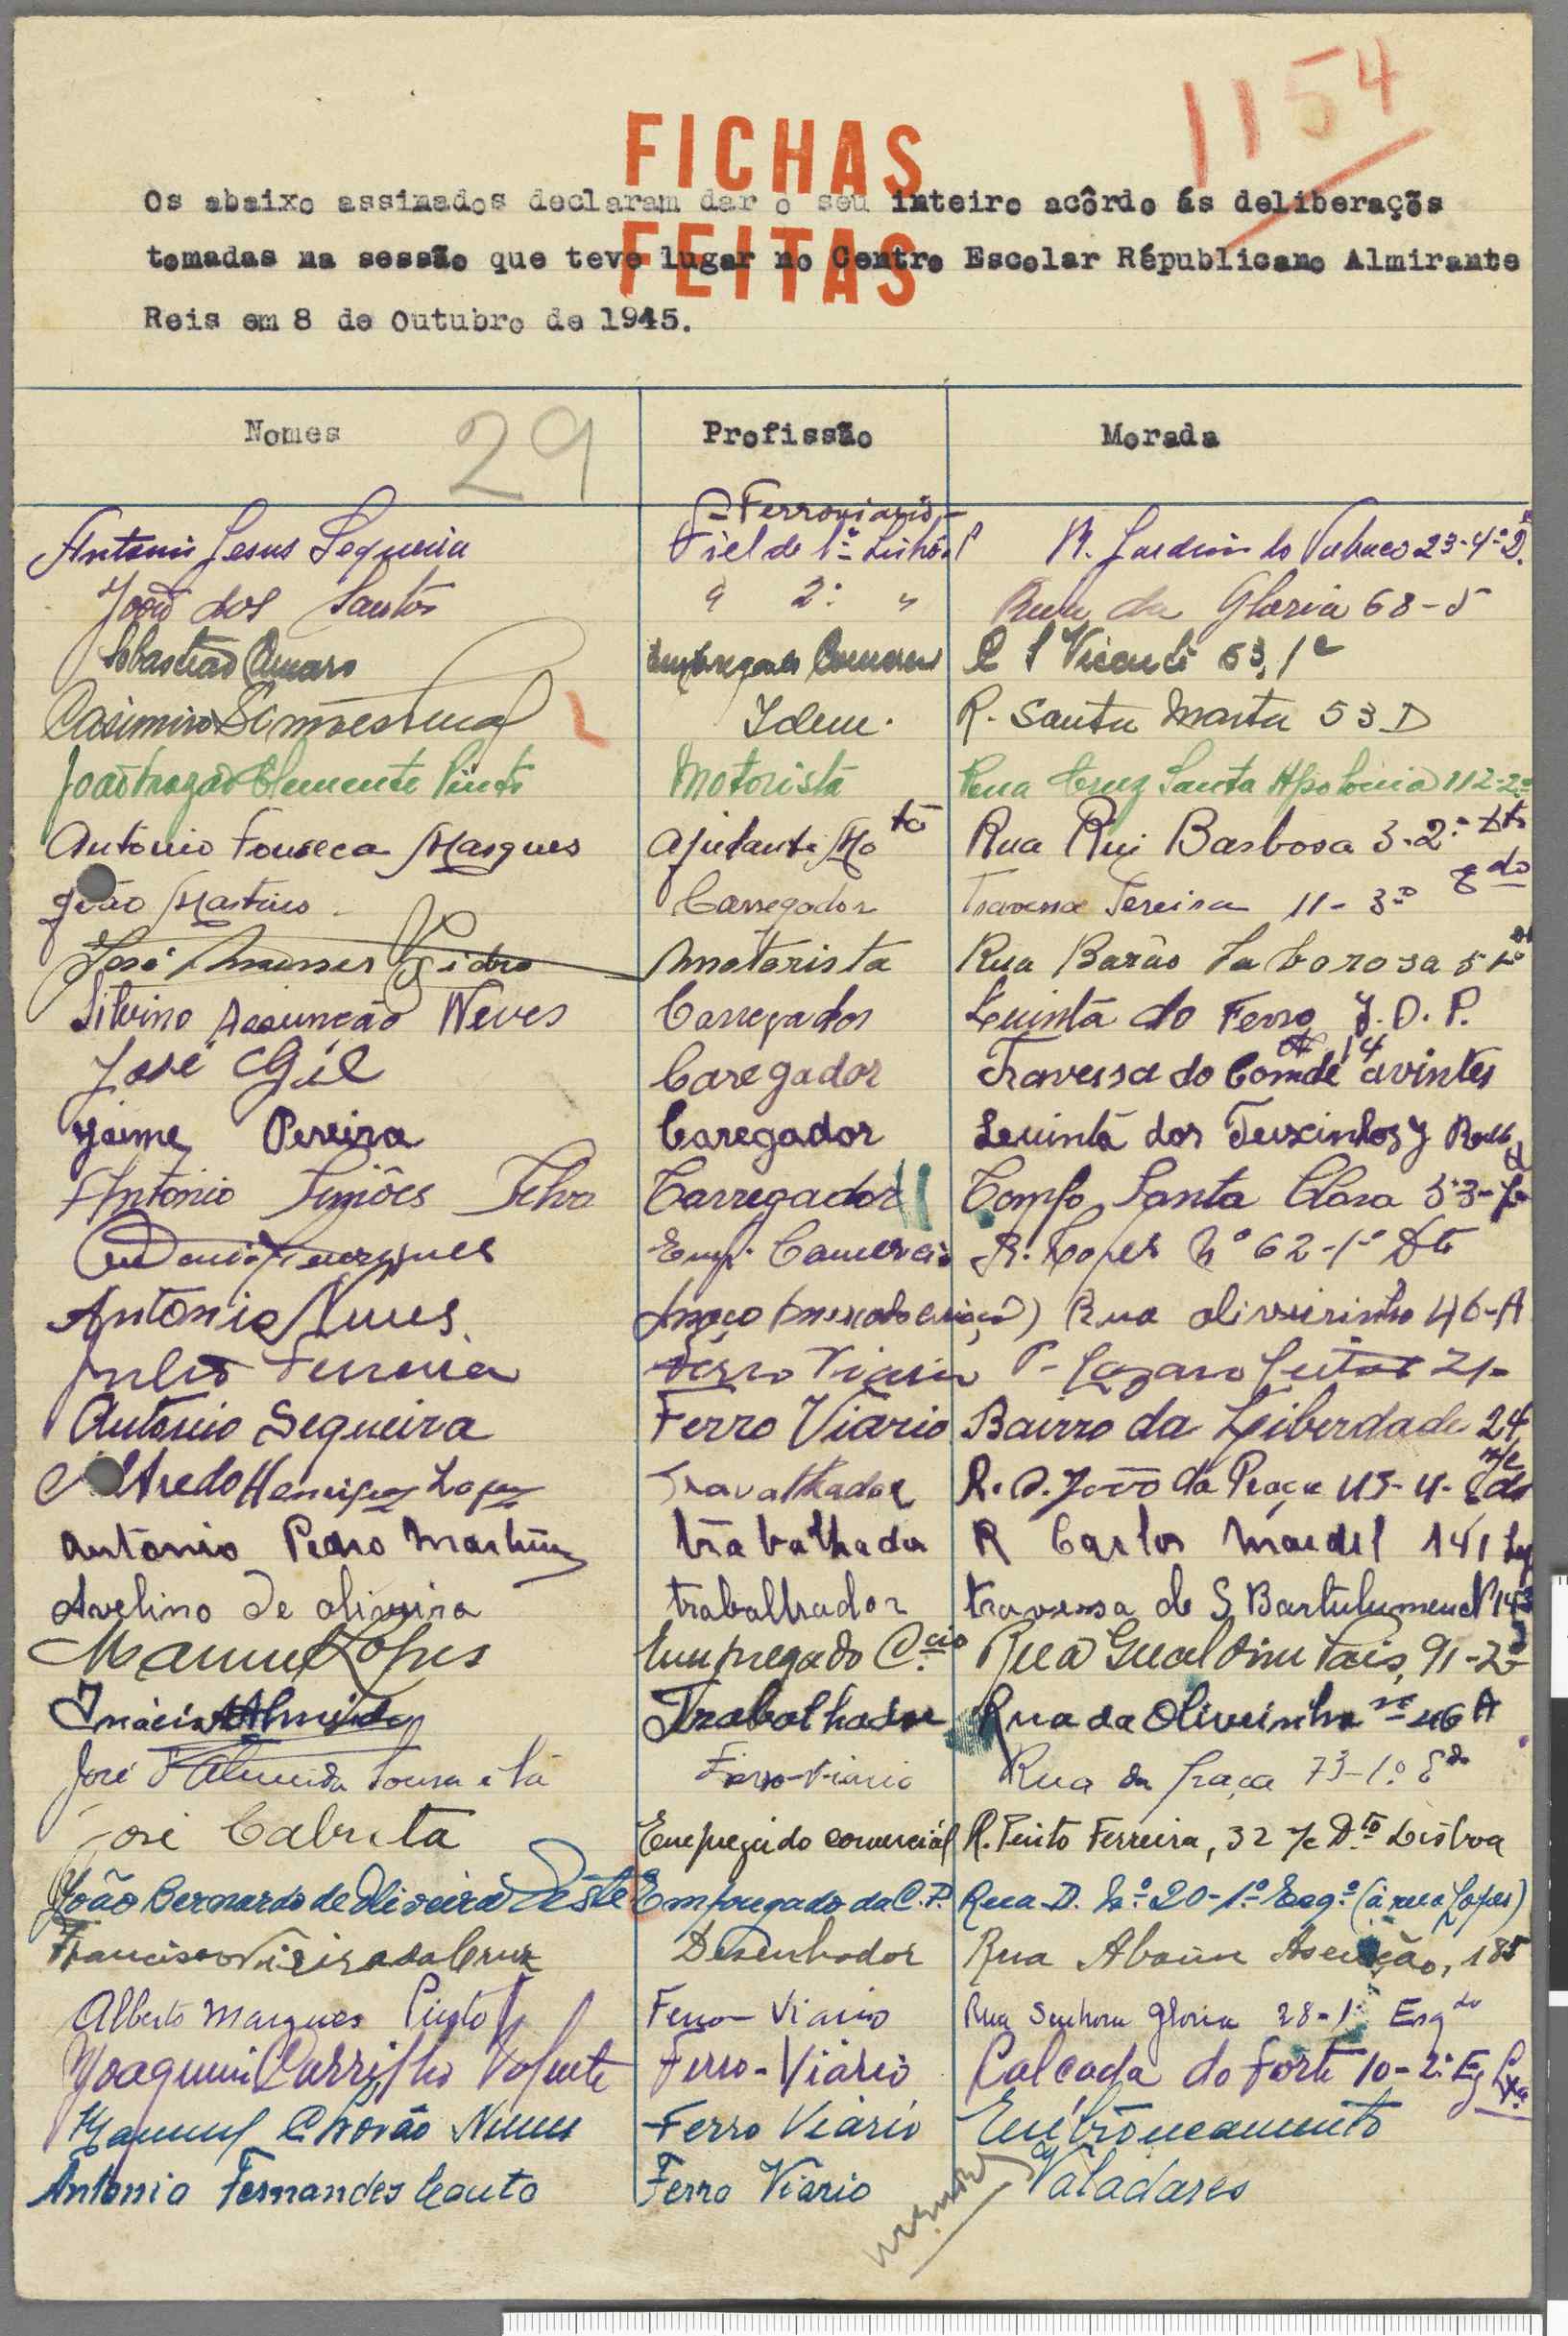 1154
FICHAS
Os abaixo assinados declaram dar o seu inteiro acôrdo ás deliberaçõs
FEITAS
tomadas na sessão que teve lugar no Centro Escolar Républicano Almirante
Reis em 8 de Outubro de 1945.
Nomes 29 Profissão Morada
- Ferroviario -
Antonio Jesus Sequeira Fiel de 1ª Lisbôa P R. Jardim do Tabaco 23-4º D.
João dos Santos " 2ª " Rua da Gloria 68-5
Sebastião Amaro Empregado Comercial C S Vicente 53, 1º
Casimiro Simões Idem. R. Santa Marta 53 D
João Clemente Pinto Motorista Rua Cruz Santa Apolonia 112-2º
Antonio Fonseca Marques Ajudante Mo tá Rua Rui Barbosa 3-2º Dto
João Martins Carregador Travessa Pereira 11-3º E do
José Pidro Motorista Rua Barão
Silvino Assunção Neves Carregador Quinta do Ferro J. O. P.
José Gil Caregador Travessa do Comde 14 avintes
Jaime Pereira Caregador dos
Antonio Simões Silva Carregador Campo Santa Clara 53-
Henriques Emp. Comercio R. Lopes Nº 62-1º Dto
Antonio Nunes moço (mercado Rua oliveirinha 46-A
Julio Ferreira Ferro Viario P- Lazaro Leitão 21-
Antonio Sequeira Ferro Viario Bairro da Leiberdade 24
Alfredo Henriques Lopes Travalhador R. S. João da Praça 45-4- E do
Antonio Pedro Martins trabalhador R Carlos Mardel 141
Avelino de oliveira trabalhador travessa de S Bartulumeu
Manuel Lopes Empregado C.cio Rua Gualdim Pais, 91-2º
Inácio Almeida Trabalhador Rua da Oliveirinha nº 46 A
José d'Almeida Sousa e Sá Ferro-Viario Rua da Graça 73-1º E do
José Cabrita Empregado comerciál R. Pinto Ferreira, 32 r/c D.to Lisboa
João Bernardo de Oliveira Empregado da C.P. Rua D. Nº 20-1º Esqº (à rua Lopes)
Francisco Vieira da Cruz Desenhador Rua Ascenção, 185
Alberto Marques Pinto Ferro-Viario Rua Senhora Gloria 28-1º Esqdo
Joaquim Carrilho Valente Ferro-Viário Calcada do Forte 10-2º Eq Lxa
Manuel Chorão Nunes Ferro Viário Entroncamento
Antonio Fernandes Couto Ferro Viario Valadares